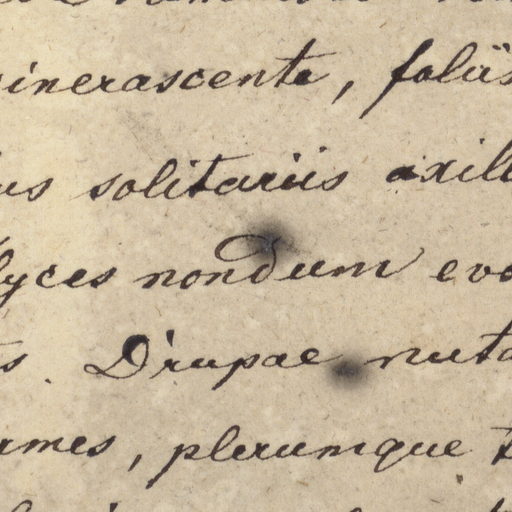 cinerascente, foliis
us solitariis axill
lyces nondum evo
s. Drupae nuta
rmes, plerumque t